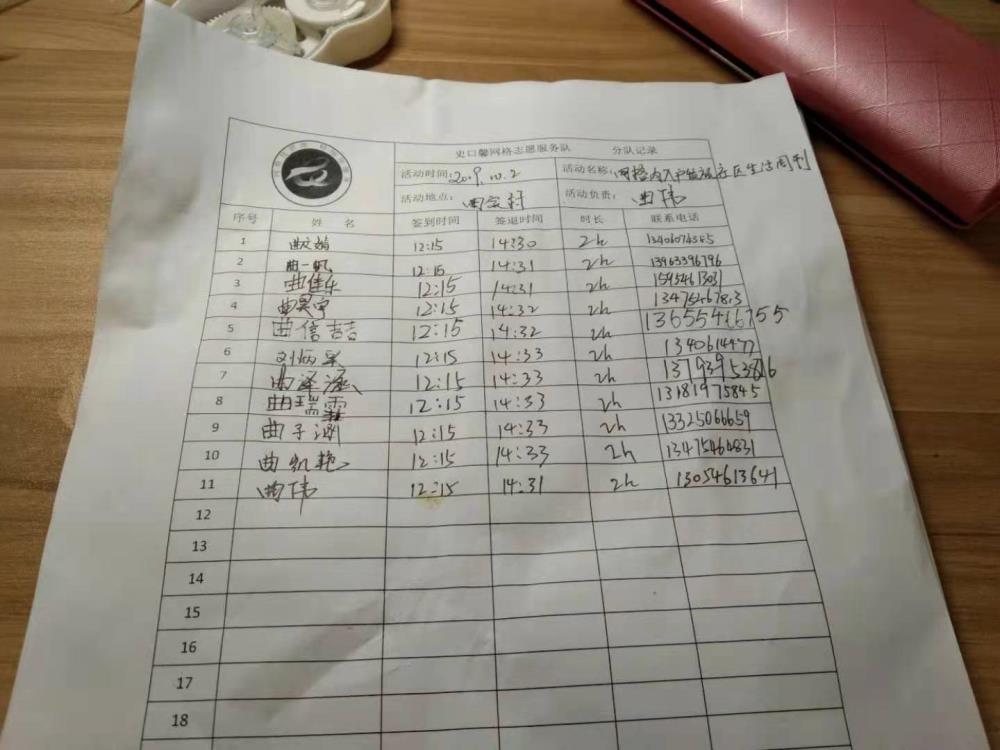 史口馨网格志愿服务队 分队记录
活动时间:2019.10.2 活动名称:
活动地点: 活动负责:曲伟
序号 姓 名 签到时间 签退时间 时长 联系电话
1 曲文娟 12:15 14:30 2h
2 曲一帆 12:15 14:31 2h 13963396796
3 曲佳乐 12:15 14:31 2h 15954613031
4 曲昊宇 12:15 14:32 2h
5 曲信吉吉 12:15 14:32 2h 13655466755
6 刘炳呈 12:15 14:33 2h
7 曲泽涵 12:15 14:33 2h
8 曲瑞霖 12:15 14:33 2h 13181975845
9 曲子涵 12:15 14:33 2h 13325066659
10 曲凯艳 12:15 14:33 2h 13475460831
11 曲伟 12:15 14:31 2h 13054613641
12
13
14
15
16
17
18